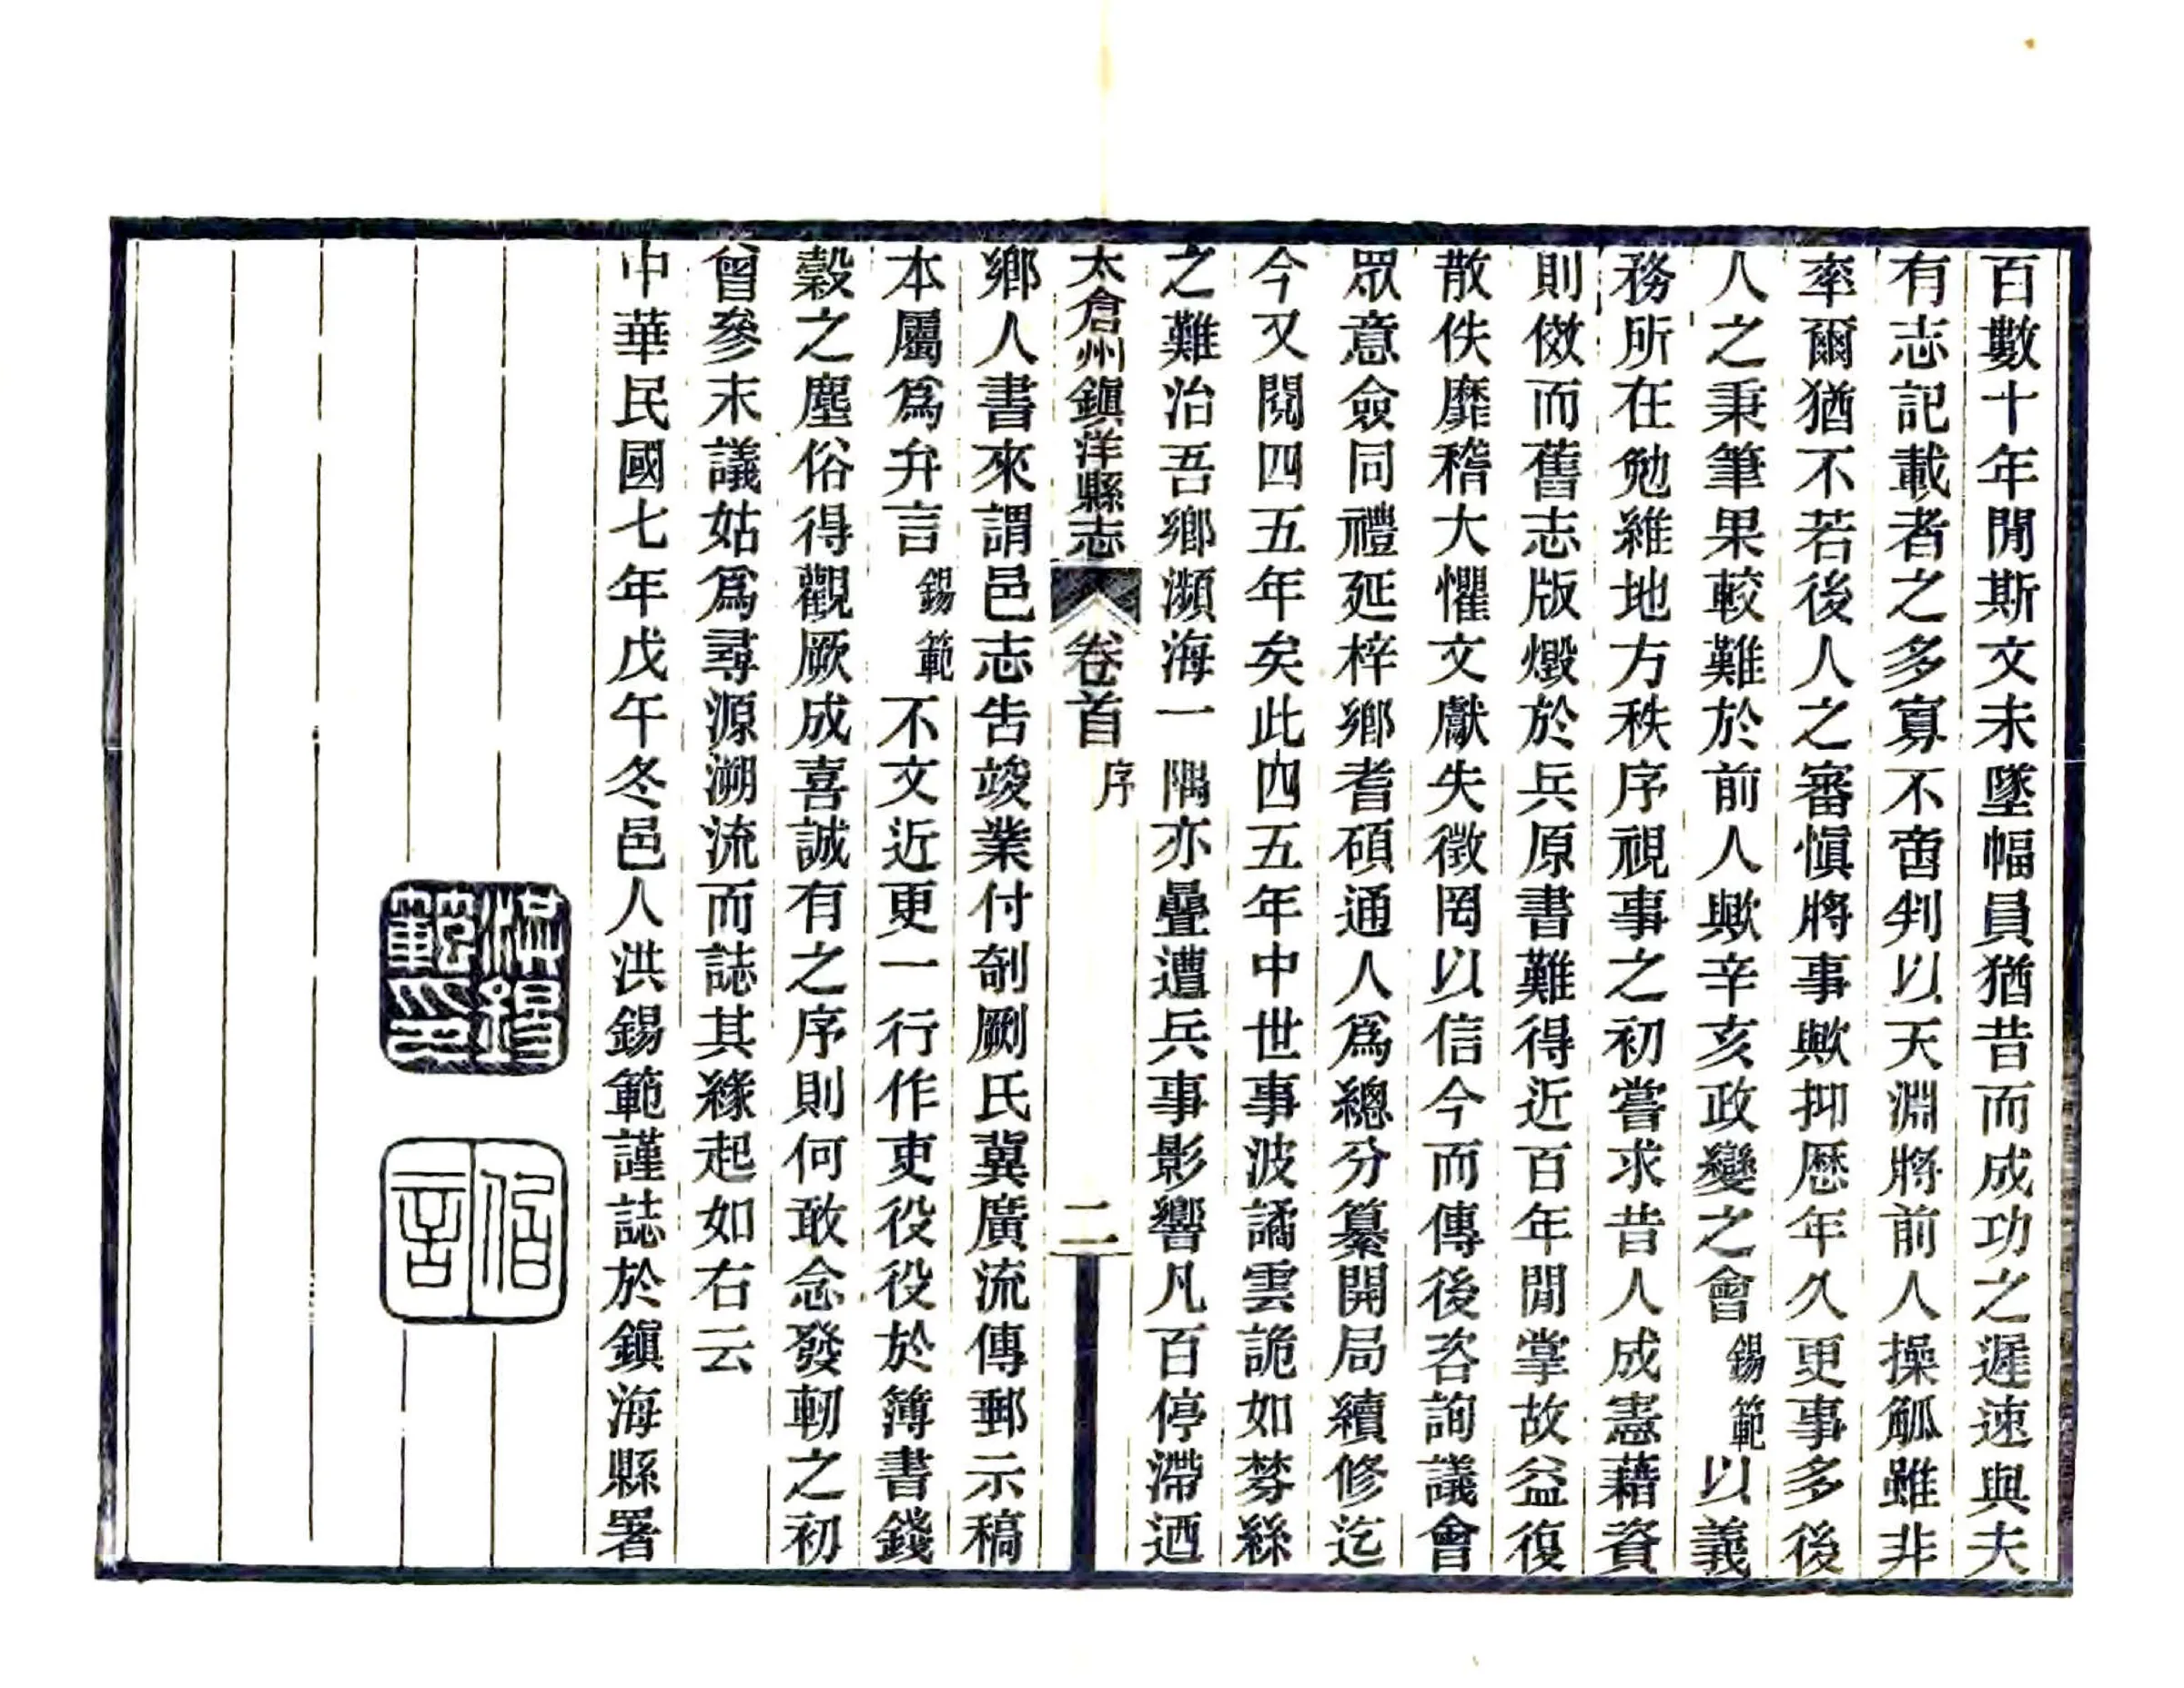 百數十年閒斯文未墜幅員猶昔而成功之遲速與夫
有志記載者之多寡不啻判以天淵將前人操觚雖非
率爾猶不若後人之審慎將事歟抑歷年久更事多後
人之秉筆果較難於前人歟辛亥政變之會錫範以義
務所在勉維地方秩序視事之初嘗求昔人成憲藉資
則傚而舊志版燬於兵原書難得近百年閒掌故益復
散佚靡稽大懼文獻失徵罔以信今而傳後咨詢議會
眾意僉同禮延梓鄉耆碩通人為總分纂開局續修迄
今又閱四五年矣此四五年中世事波譎雲詭如棼絲
之難治吾鄉瀕海一隅亦疊遭兵事影響凡百停滯迺
太倉州鎮洋縣志 卷首 序 二
鄉人書來謂邑志告竣業付剞劂氏冀廣流傳郵示稿
本屬為弁言錫範不文近更一行作吏役役於簿書錢
穀之塵俗得觀厥成喜誠有之序則何敢念發軔之初
曾參末議姑為尋源溯流而誌其緣起如右云
中華民國七年戊午冬邑人洪錫範謹誌於鎮海縣署
洪錫範印
伯言